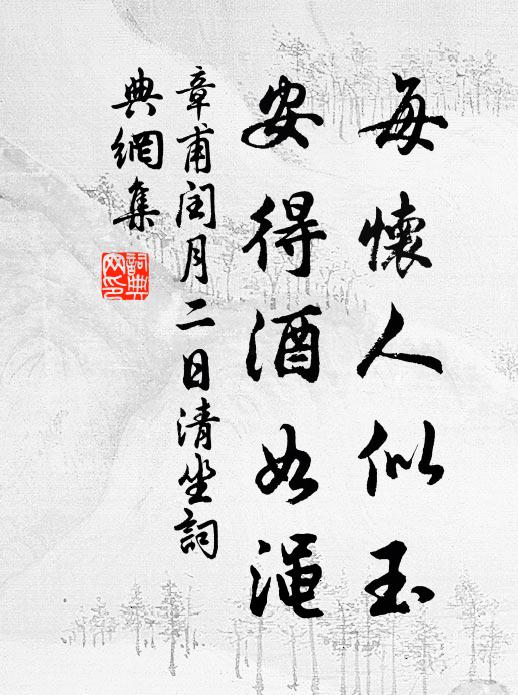 每懷人似玉
安得酒如澠
章甫閏月二日清坐詞
典網集
詞典
网印